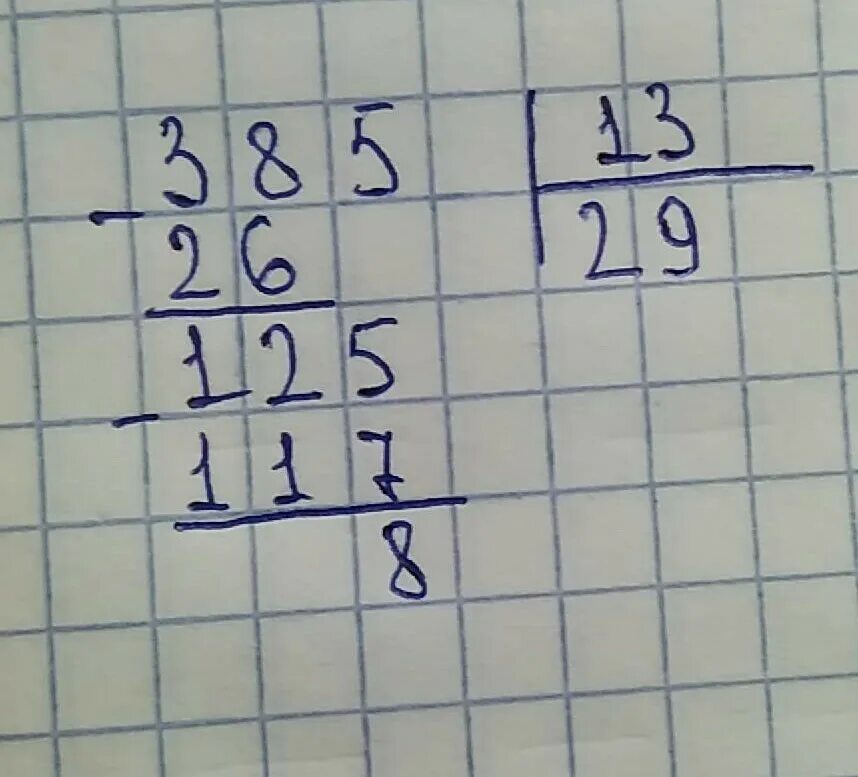 385 13
- 26 29
125
- 117
8